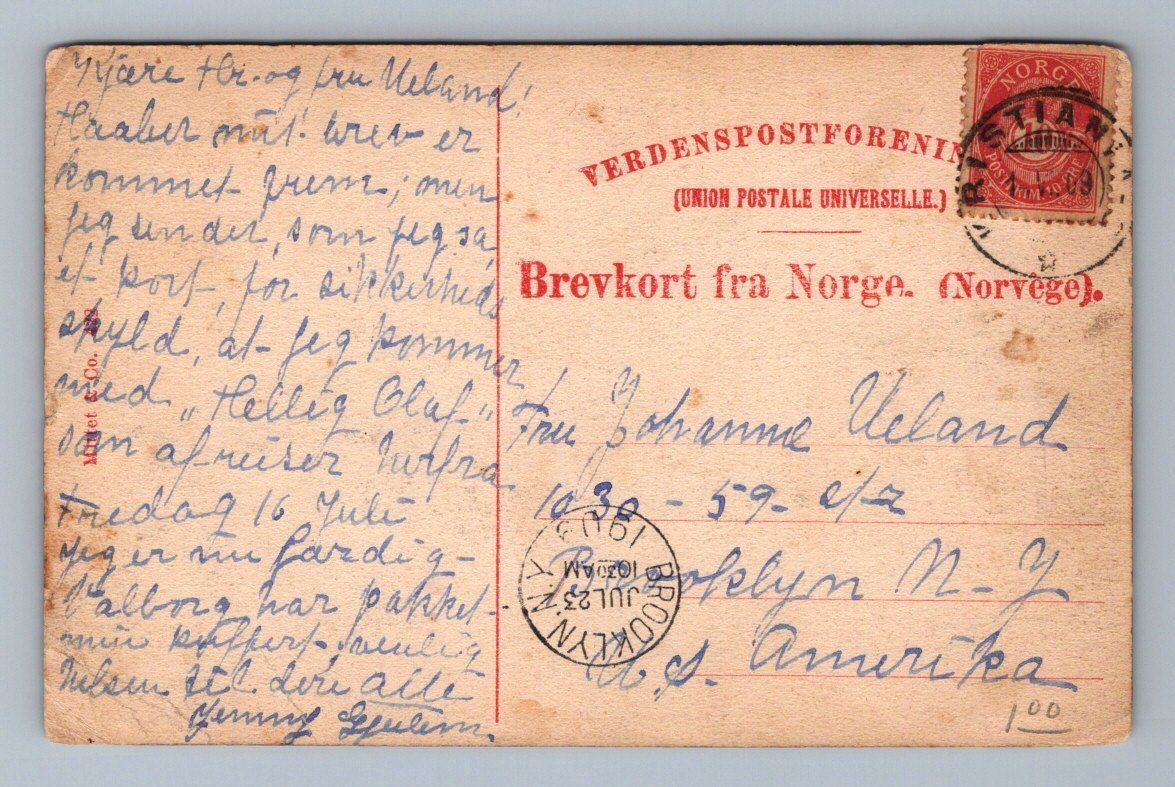 Kjære Hr. og fru Ueland!
Haaber mit brev er
kommet frem; men
jeg sender, som jeg sa,
et kort, for sikkerheds
skyld, at jeg kommer
med "Hellig Olaf"
som afreiser herfra
Fredag 16 Juli
Jeg er nu færdig-
Valborg har pakket
min kuffert, venlig
hilsen til dere alle
Jenny
Mittet & Co.
VERDENSPOSTFORENIN
(UNION POSTALE UNIVERSELLE.)
Brevkort fra Norge. (Norvège).
NORGE
RISTIAN
09
Fru Johanne Ueland
1030 - 59 - str
Brooklyn N-Y
U.S. Amerika
BROOKLYN N.Y.
JUL 23
10 30 AM
1909
1 00